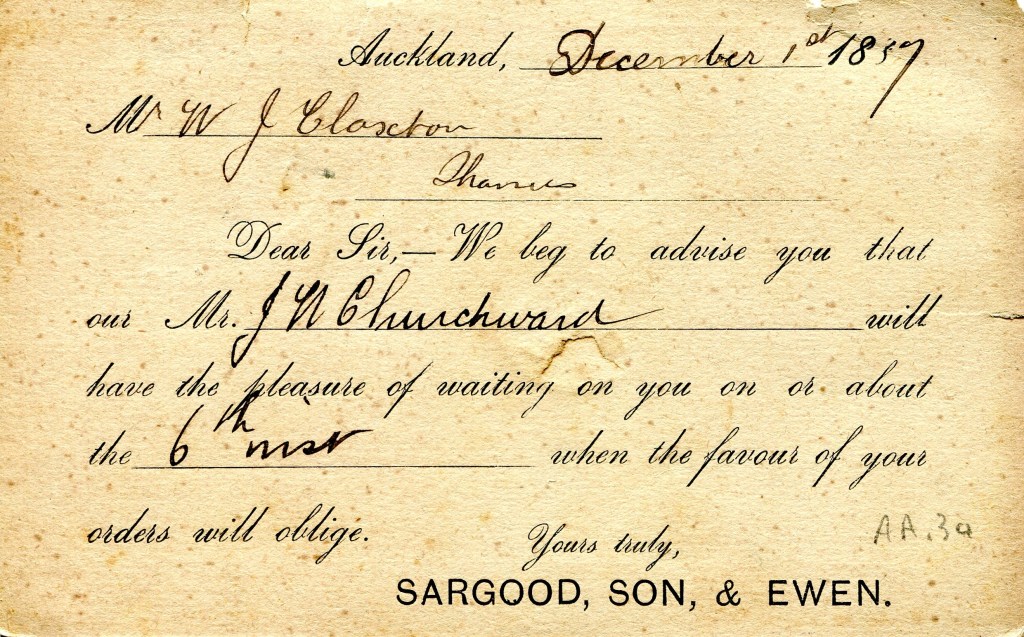 Auckland, December 1st 1887
Mr W J Claxton
Thames
Dear Sir,—We beg to advise you that
our Mr. J W Churchward will
have the pleasure of waiting on you on or about
the 6th inst when the favour of your
orders will oblige.
Yours truly,
AA.3a
SARGOOD, SON, & EWEN.